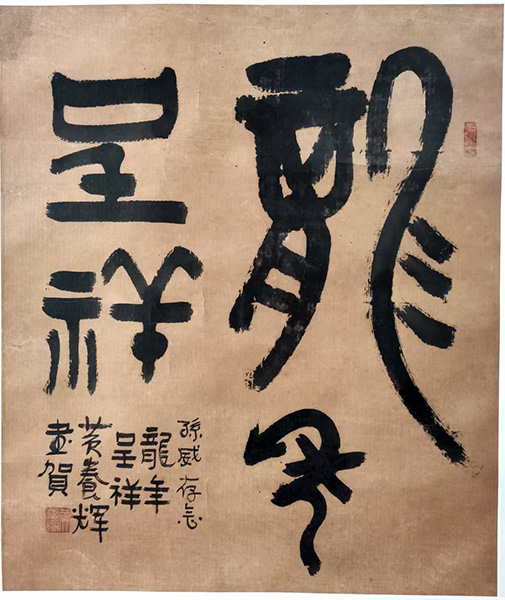 龍年
呈祥
孫威存念
龍年
呈祥
黄養輝
書賀